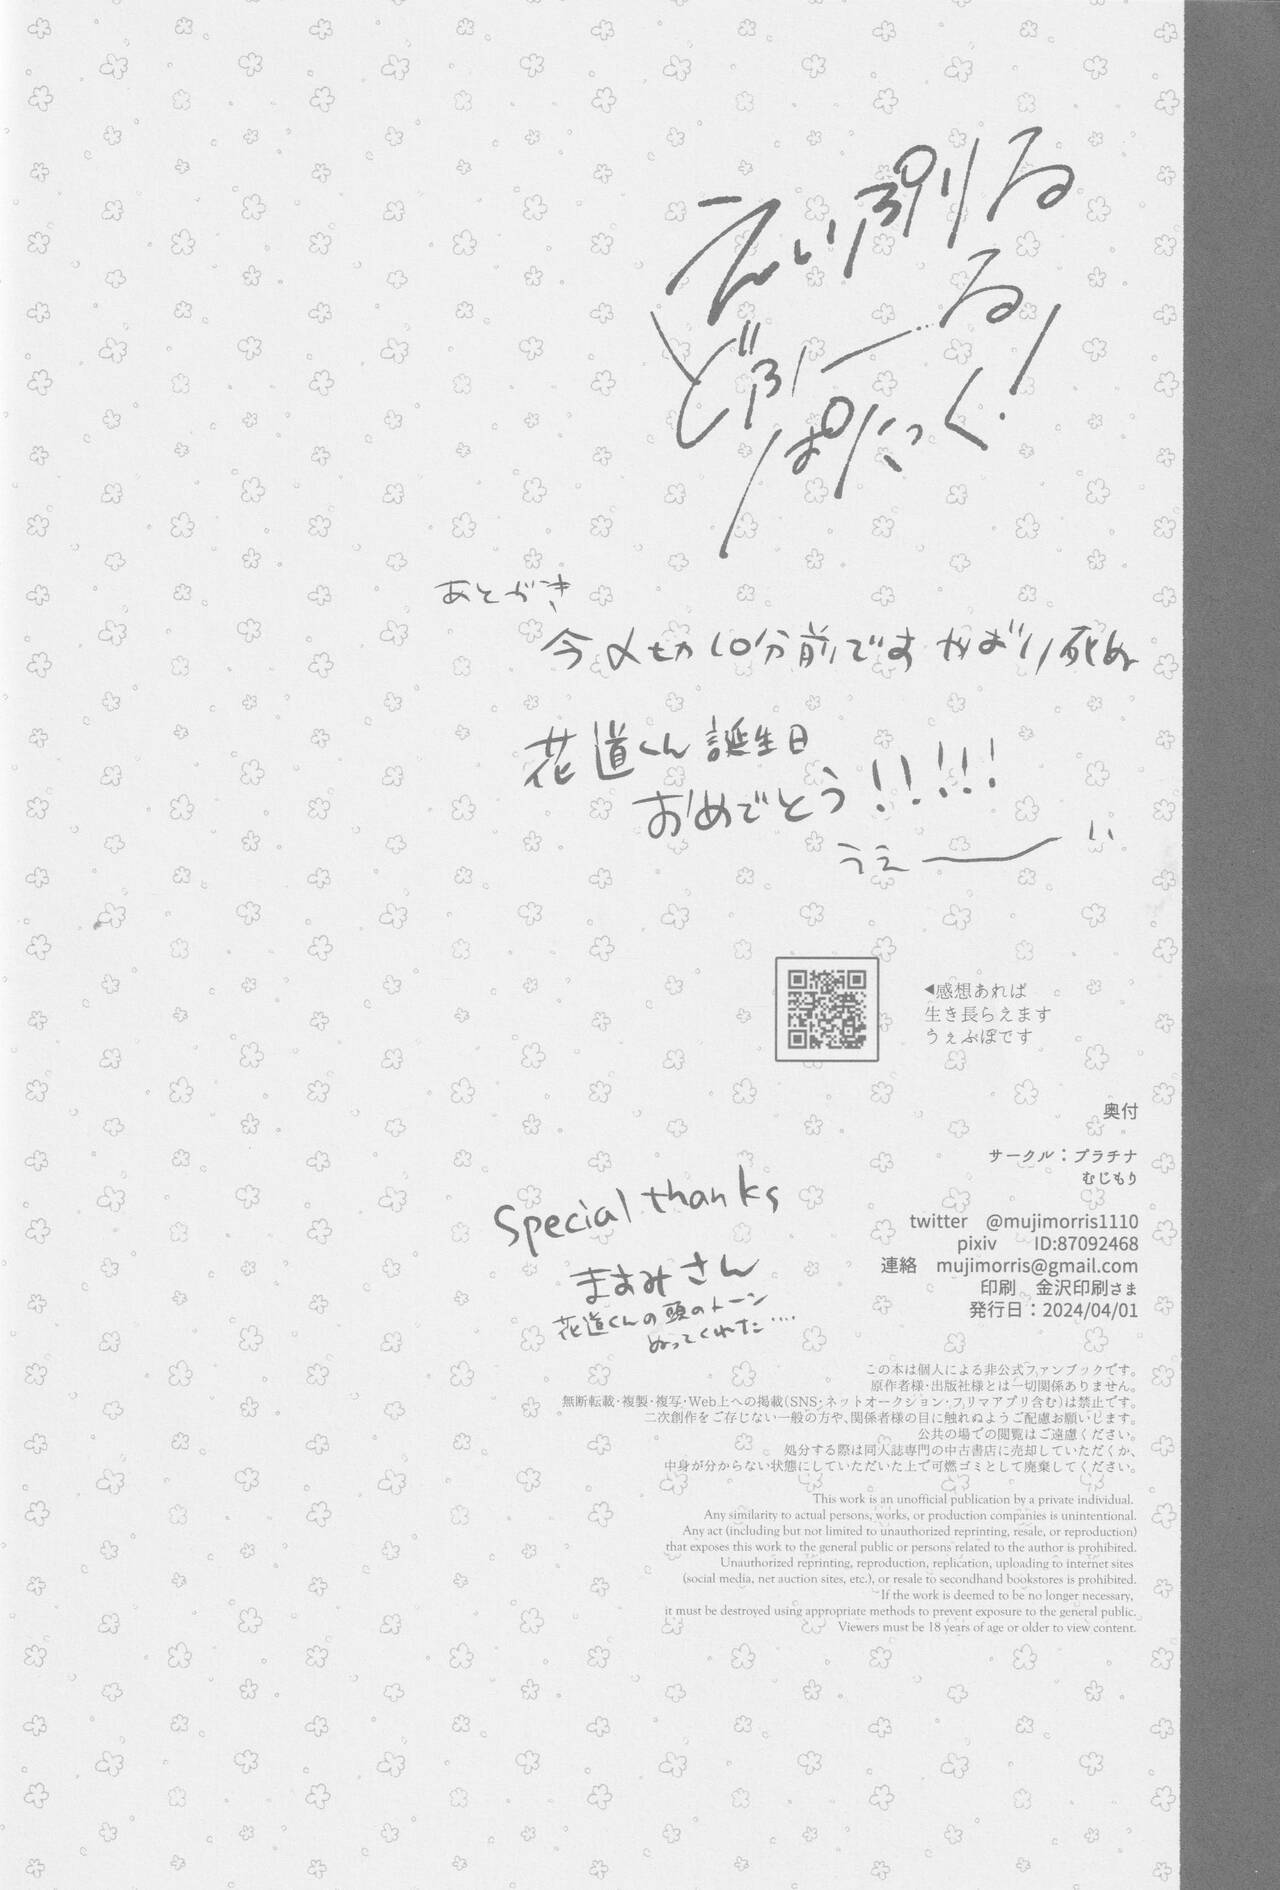 えいぷりる
どふーる
ぱにっく!
あとがき
今〆切10分前です やばい死ぬ
花道くん誕生日
おめでとう!!!!!
うえーい
◀感想あれば
生き長らえます
うぇぶぼです
奥付
サークル：プラチナ
むじもり
twitter @mujimorris1110
pixiv ID:87092468
連絡 mujimorris@gmail.com
印刷 金沢印刷さま
発行日：2024/04/01
Special thanks
まあみさん
花道くんの頭のトーン
ぬってくれた....
この本は個人による非公式ファンブックです。
原作者様・出版社様とは一切関係ありません。
無断転載・複製・複写・Web上への掲載(SNS・ネットオークション・フリマアプリ含む)は禁止です。
二次創作をご存じない一般の方や、関係者様の目に触れぬようご配慮お願いします。
公共の場での閲覧はご遠慮ください。
処分する際は同人誌専門の中古書店に売却していただくか、
中身が分からない状態にしていただいた上で可燃ゴミとして廃棄してください。
This work is an unofficial publication by a private individual.
Any similarity to actual persons, works, or production companies is unintentional.
Any act (including but not limited to unauthorized reprinting, resale, or reproduction)
that exposes this work to the general public or persons related to the author is prohibited.
Unauthorized reprinting, reproduction, replication, uploading to internet sites
(social media, net auction sites, etc.), or resale to secondhand bookstores is prohibited.
If the work is deemed to be no longer necessary,
it must be destroyed using appropriate methods to prevent exposure to the general public.
Viewers must be 18 years of age or older to view content.